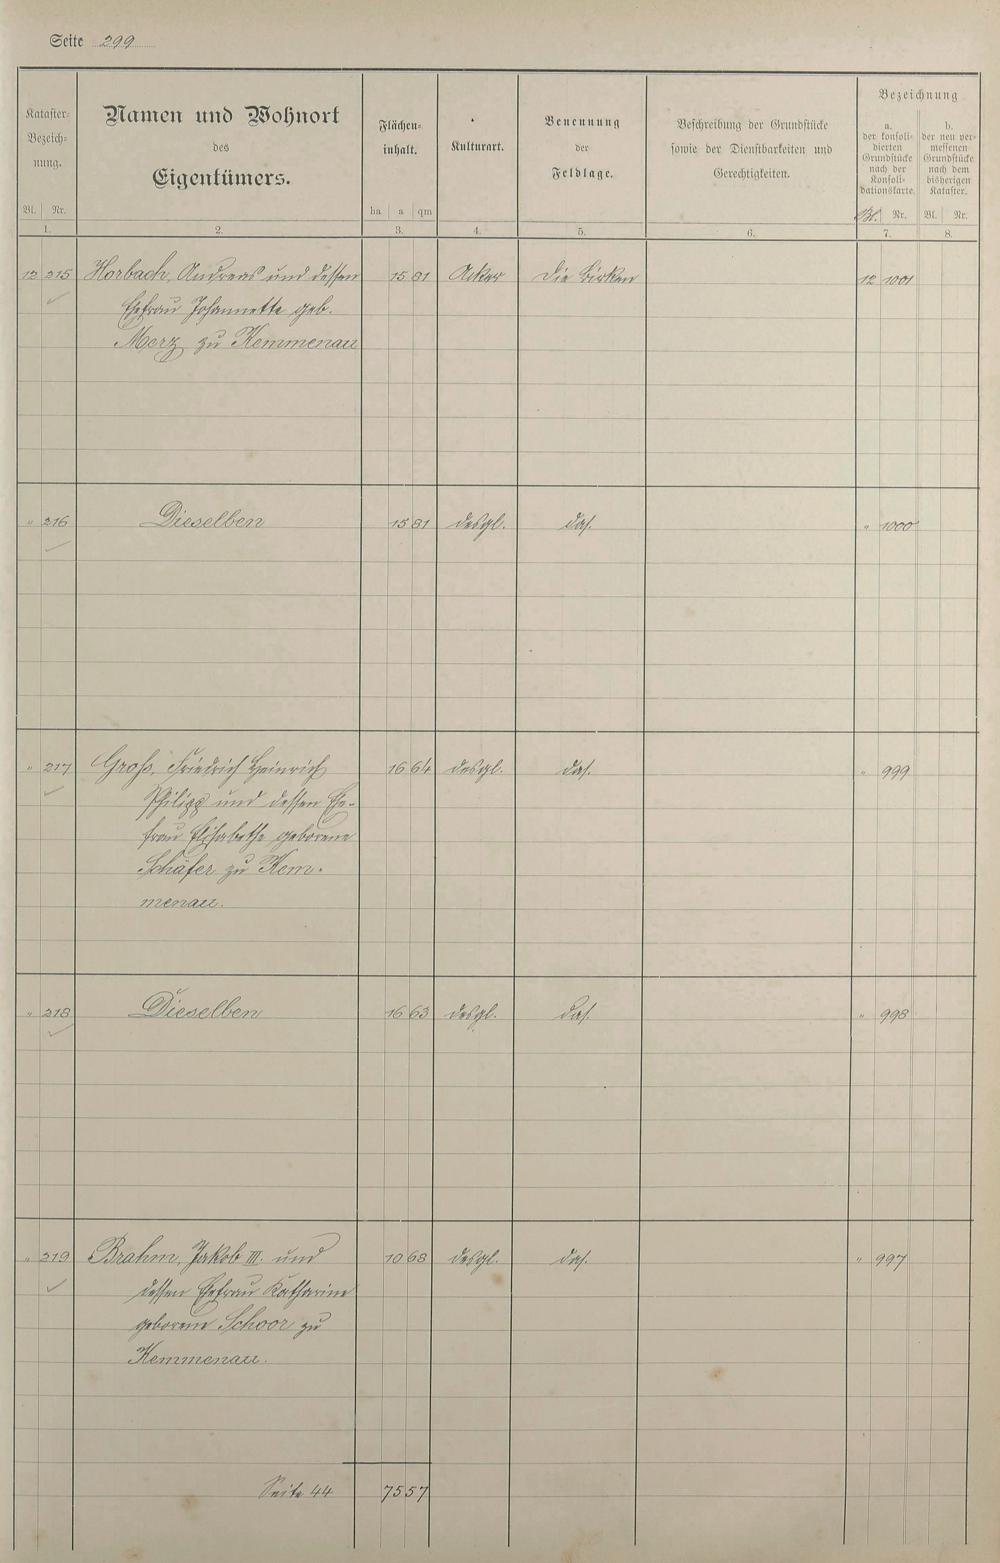 Seite 299
Kataster-
Bezeich-
nung.
Namen und Wohnort
des
Eigentümers.
Flächen-
inhalt.
Kulturart.
Benennung
der
Feldlage.
Beschreibung der Grundstücke
sowie der Dienstbarkeiten und
Gerechtigkeiten.
Bezeichnung
a.
der konsoli-
dierten
Grundstücke
nach der
Konsoli-
dationskarte.
b.
der neu ver-
messenen
Grundstücke
nach dem
bisherigen
Kataster.
Bl. Nr. ha a qm Bl. Nr. Bl. Nr.
1. 2. 3. 4. 5. 6. 7. 8.
12 215 Horbach, Andreas und dessen 15 81 Acker Die Birken 12 1001
Ehefrau Johannette geb.
Merz zu Kemmenau
" 216 Dieselben 15 81 desgl. das. " 1000
" 217 Groß, Friedrich Heinrich 16 64 desgl. das. " 999
Philipp und dessen Ehe-
frau Elisabethe geborene
Schäfer zu Kem-
menau.
" 218 Dieselben 16 63 desgl. das. " 998
" 219 Brahm, Jakob III. und 10 68 desgl. das. " 997
dessen Ehefrau Katharine
geborene Schoor zu
Kemmenau.
Seite 44 75 57